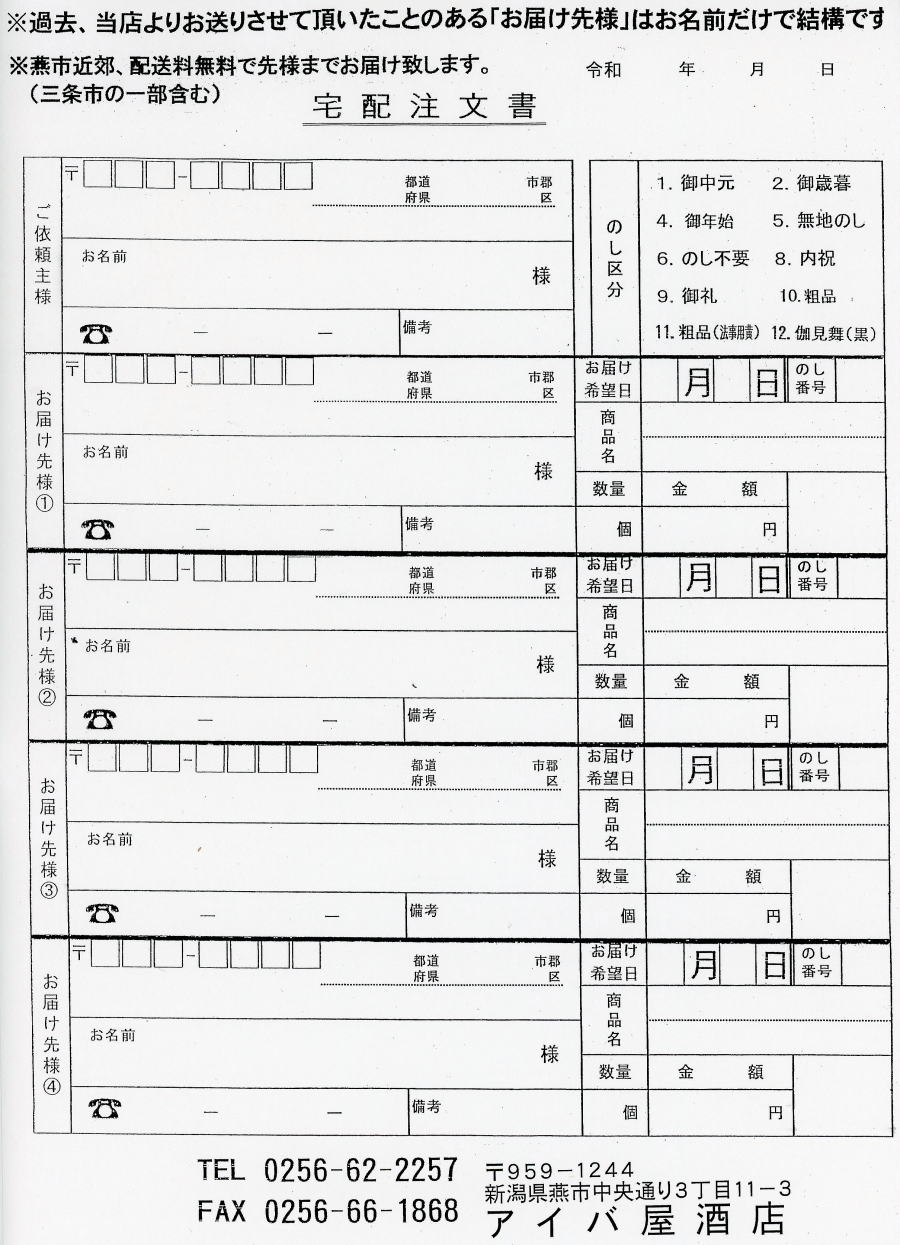 ※過去、当店よりお送りさせて頂いたことのある「お届け先様」はお名前だけで結構です
※燕市近郊、配送料無料で先様までお届け致します。
(三条市の一部含む)
令和 年 月 日
宅配注文書
ご依頼主様
〒 -
都道府県 市郡区
お名前 様
☎ ― ― 備考
のし区分
1. 御中元 2. 御歳暮
4. 御年始 5. 無地のし
6. のし不要 8. 内祝
9. 御礼 10. 粗品
11. 粗品(法事用黄) 12. 伽見舞(黒)
お届け先様①
〒 -
都道府県 市郡区
お名前 様
☎ ― ― 備考
お届け希望日 月 日 のし番号
商品名
数量 金額
個 円
お届け先様②
〒 -
都道府県 市郡区
お名前 様
☎ ― ― 備考
お届け希望日 月 日 のし番号
商品名
数量 金額
個 円
お届け先様③
〒 -
都道府県 市郡区
お名前 様
☎ ― ― 備考
お届け希望日 月 日 のし番号
商品名
数量 金額
個 円
お届け先様④
〒 -
都道府県 市郡区
お名前 様
☎ ― ― 備考
お届け希望日 月 日 のし番号
商品名
数量 金額
個 円
TEL 0256-62-2257
FAX 0256-66-1868
〒959-1244
新潟県燕市中央通り3丁目11-3
アイバ屋酒店